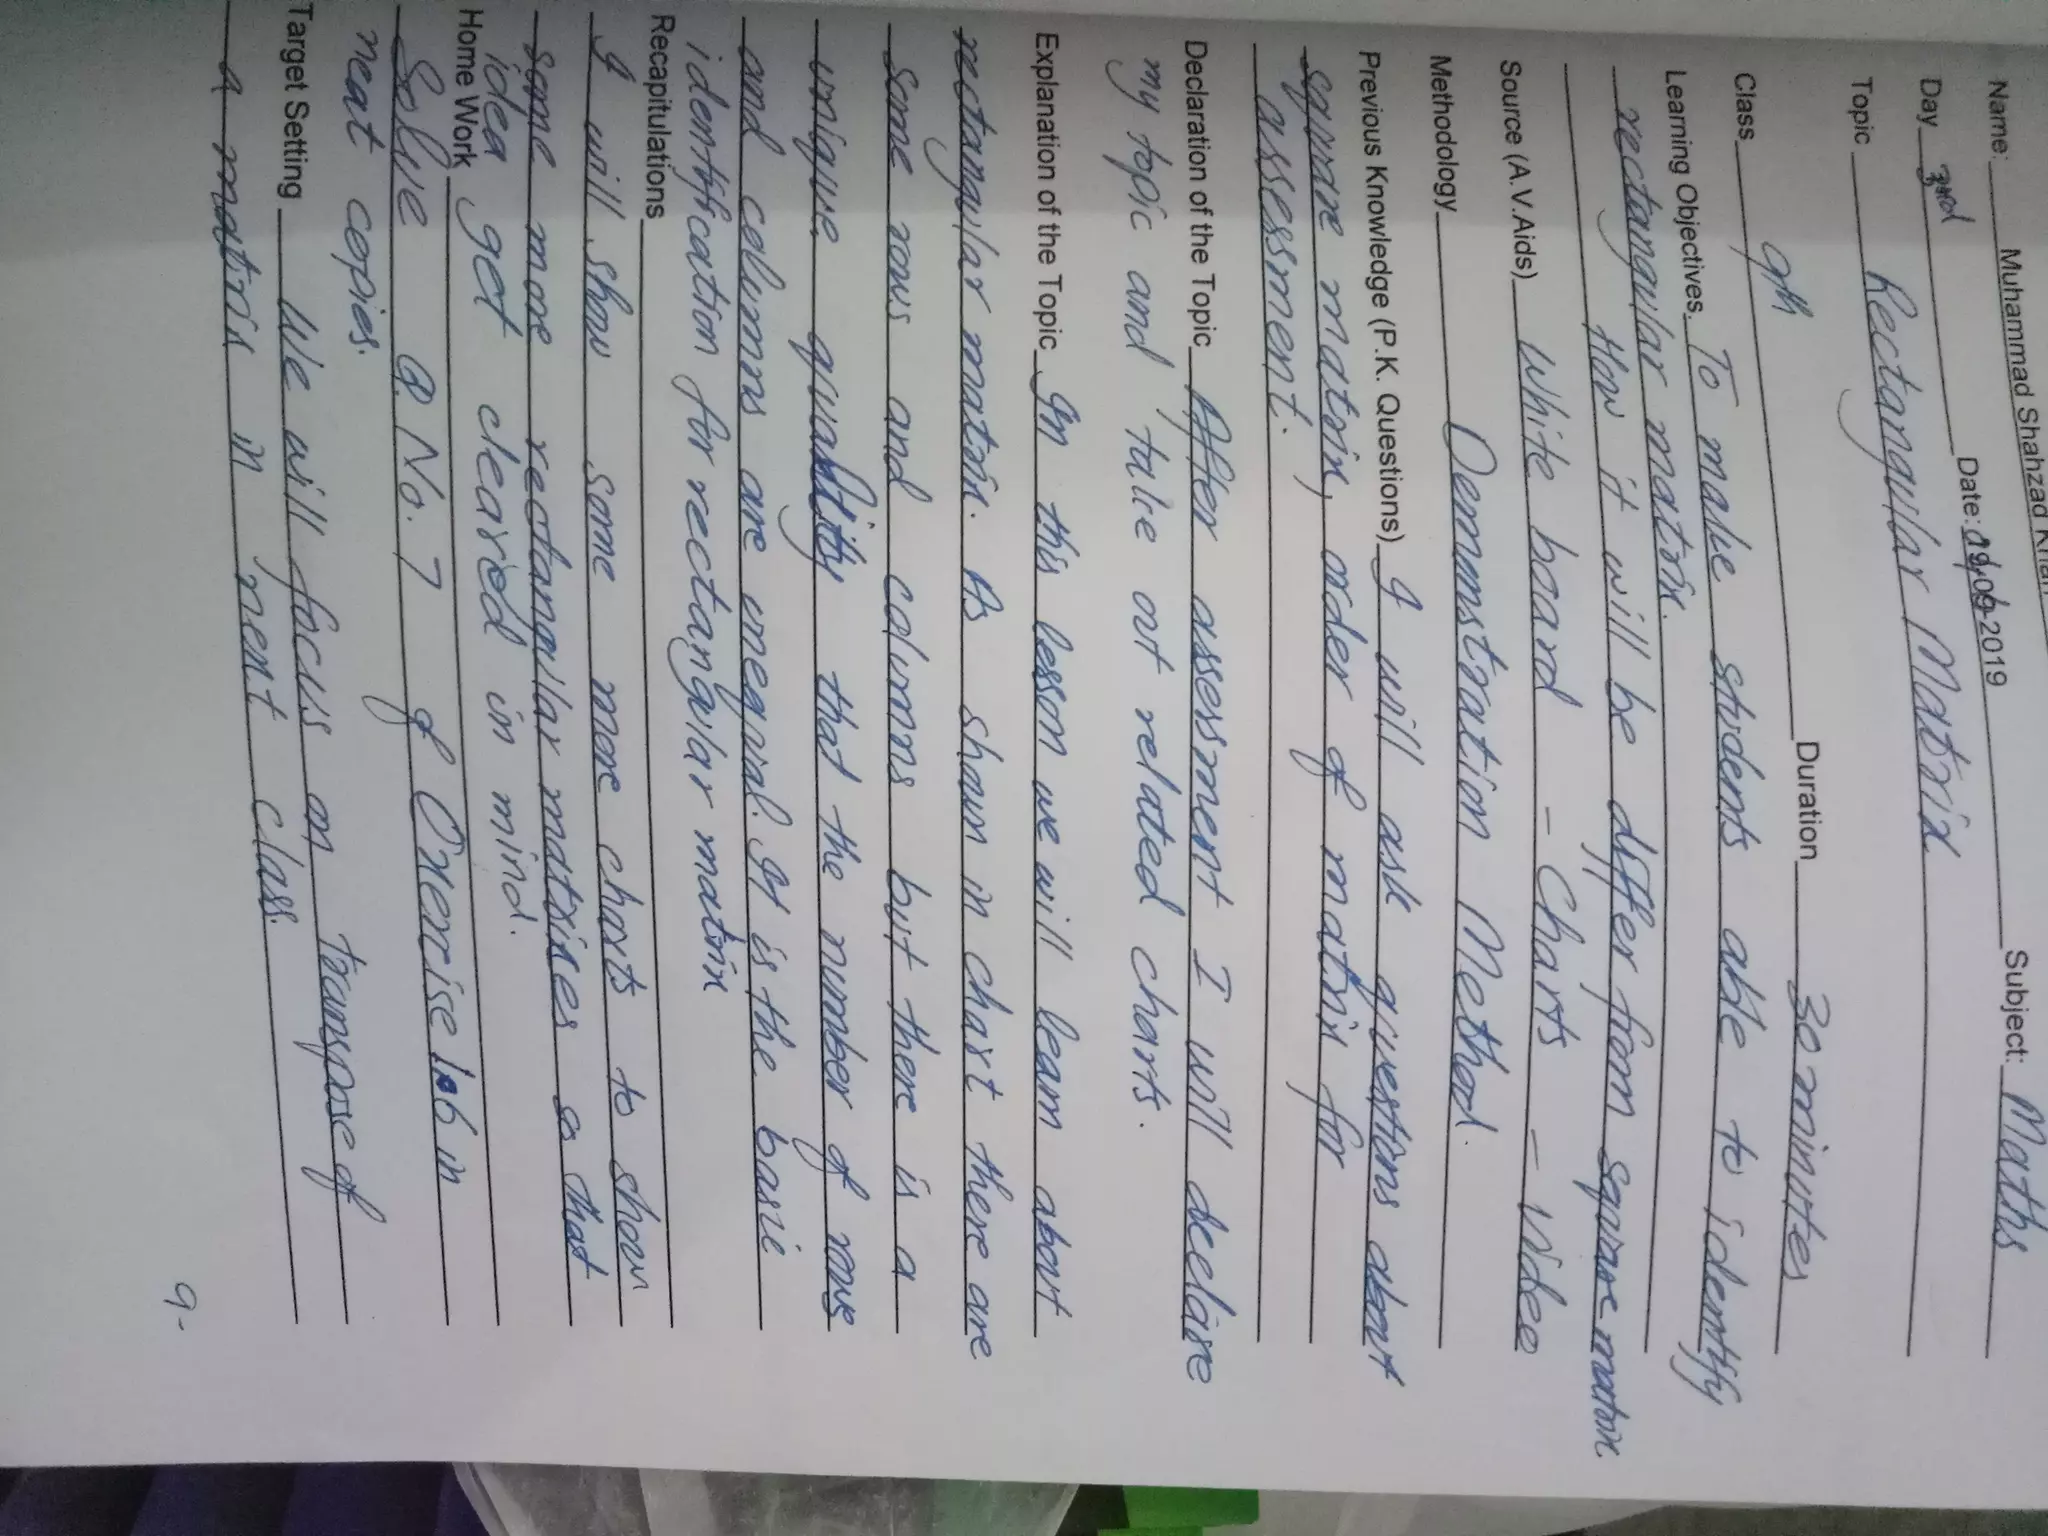 Name: Muhammad Shahzad Khan Subject: Maths
Day 3rd Date: 19-09-2019
Topic Rectangular Matrix
Class 9th Duration 30 minutes
Learning Objectives To make students able to identify
rectangular matrix.
How it will be differ from square matrix
Source (A.V.Aids) White board - Charts - Video
Methodology Demonstration Method.
Previous Knowledge (P.K. Questions) I will ask questions about
square matrix, order of matrix for
assessment.
Declaration of the Topic After assessment I will declare
my topic and take out related charts.
Explanation of the Topic In this lesson we will learn about
rectangular matrix. As shown in chart there are
some rows and columns but there is a
unique quality that the number of rows
and columns are unequal. It is the basic
identification for rectangular matrix
Recapitulations
I will show some more charts to show
some more rectangular matrixes so that
idea get cleared in mind.
Home Work
Solve Q.No.7 of Exercise 1.6 in
neat copies.
Target Setting We will focus on transpose of
a matrix in next class.
9-